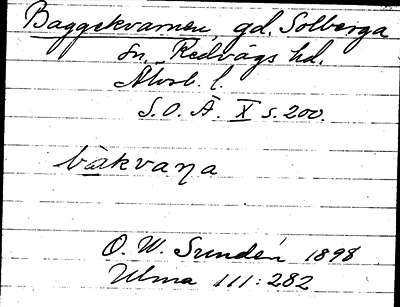 Baggekvarnen, gd. Solberga
sn, Redvägs hd.
Älvsb. l.
S.O.Ä. X s. 200.
bàkvaɳa
O. W. Sundén 1898
Ulma 111:282